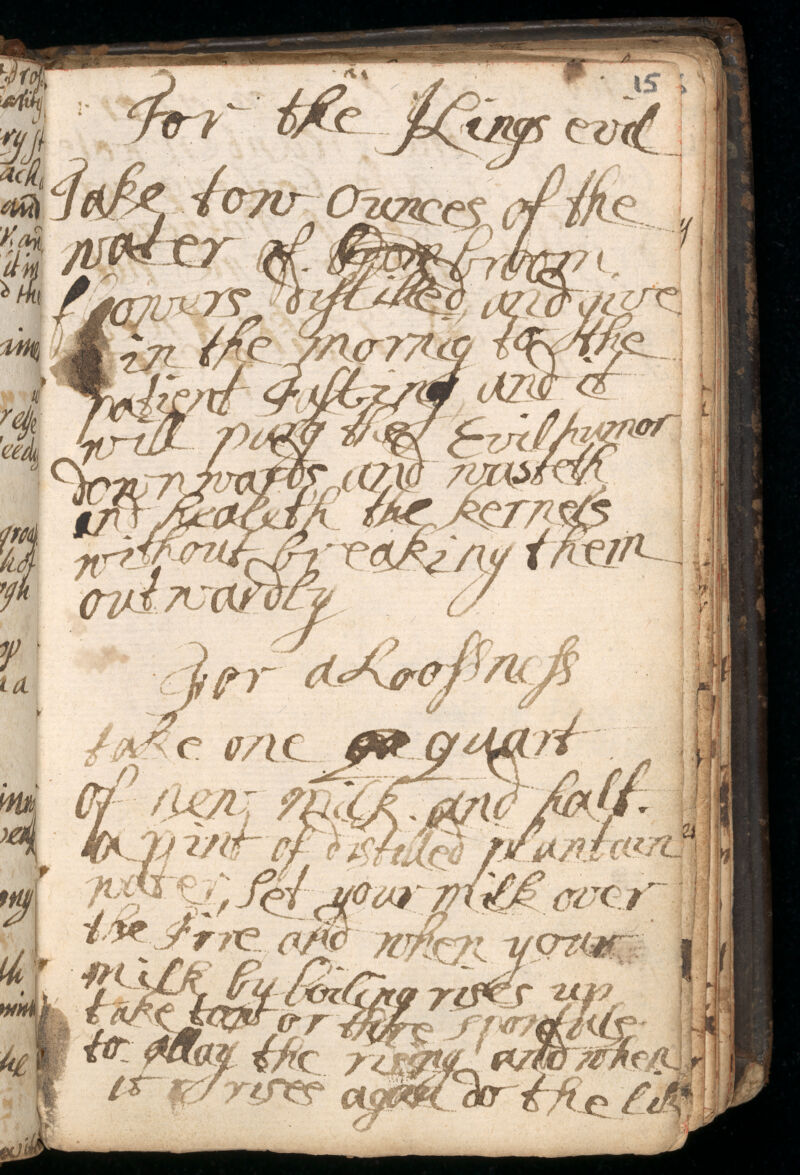 15
For the Kings evil
Take tow Ounces of the
water of broom
flowers distilled and give
in the mornig to the
patient Fasting and it
will purg the Evil humor
downwards and wasteth
and healeth the kernels
without breaking them
outwardly
For a Loossness
take one quart
of new milk and half
a pint of distilled plantain
water, set your milk over
the Fire and when your
milk by boiling rises up
take tow or thre sponfuls
to allay the rising and when
it rises again do the lik